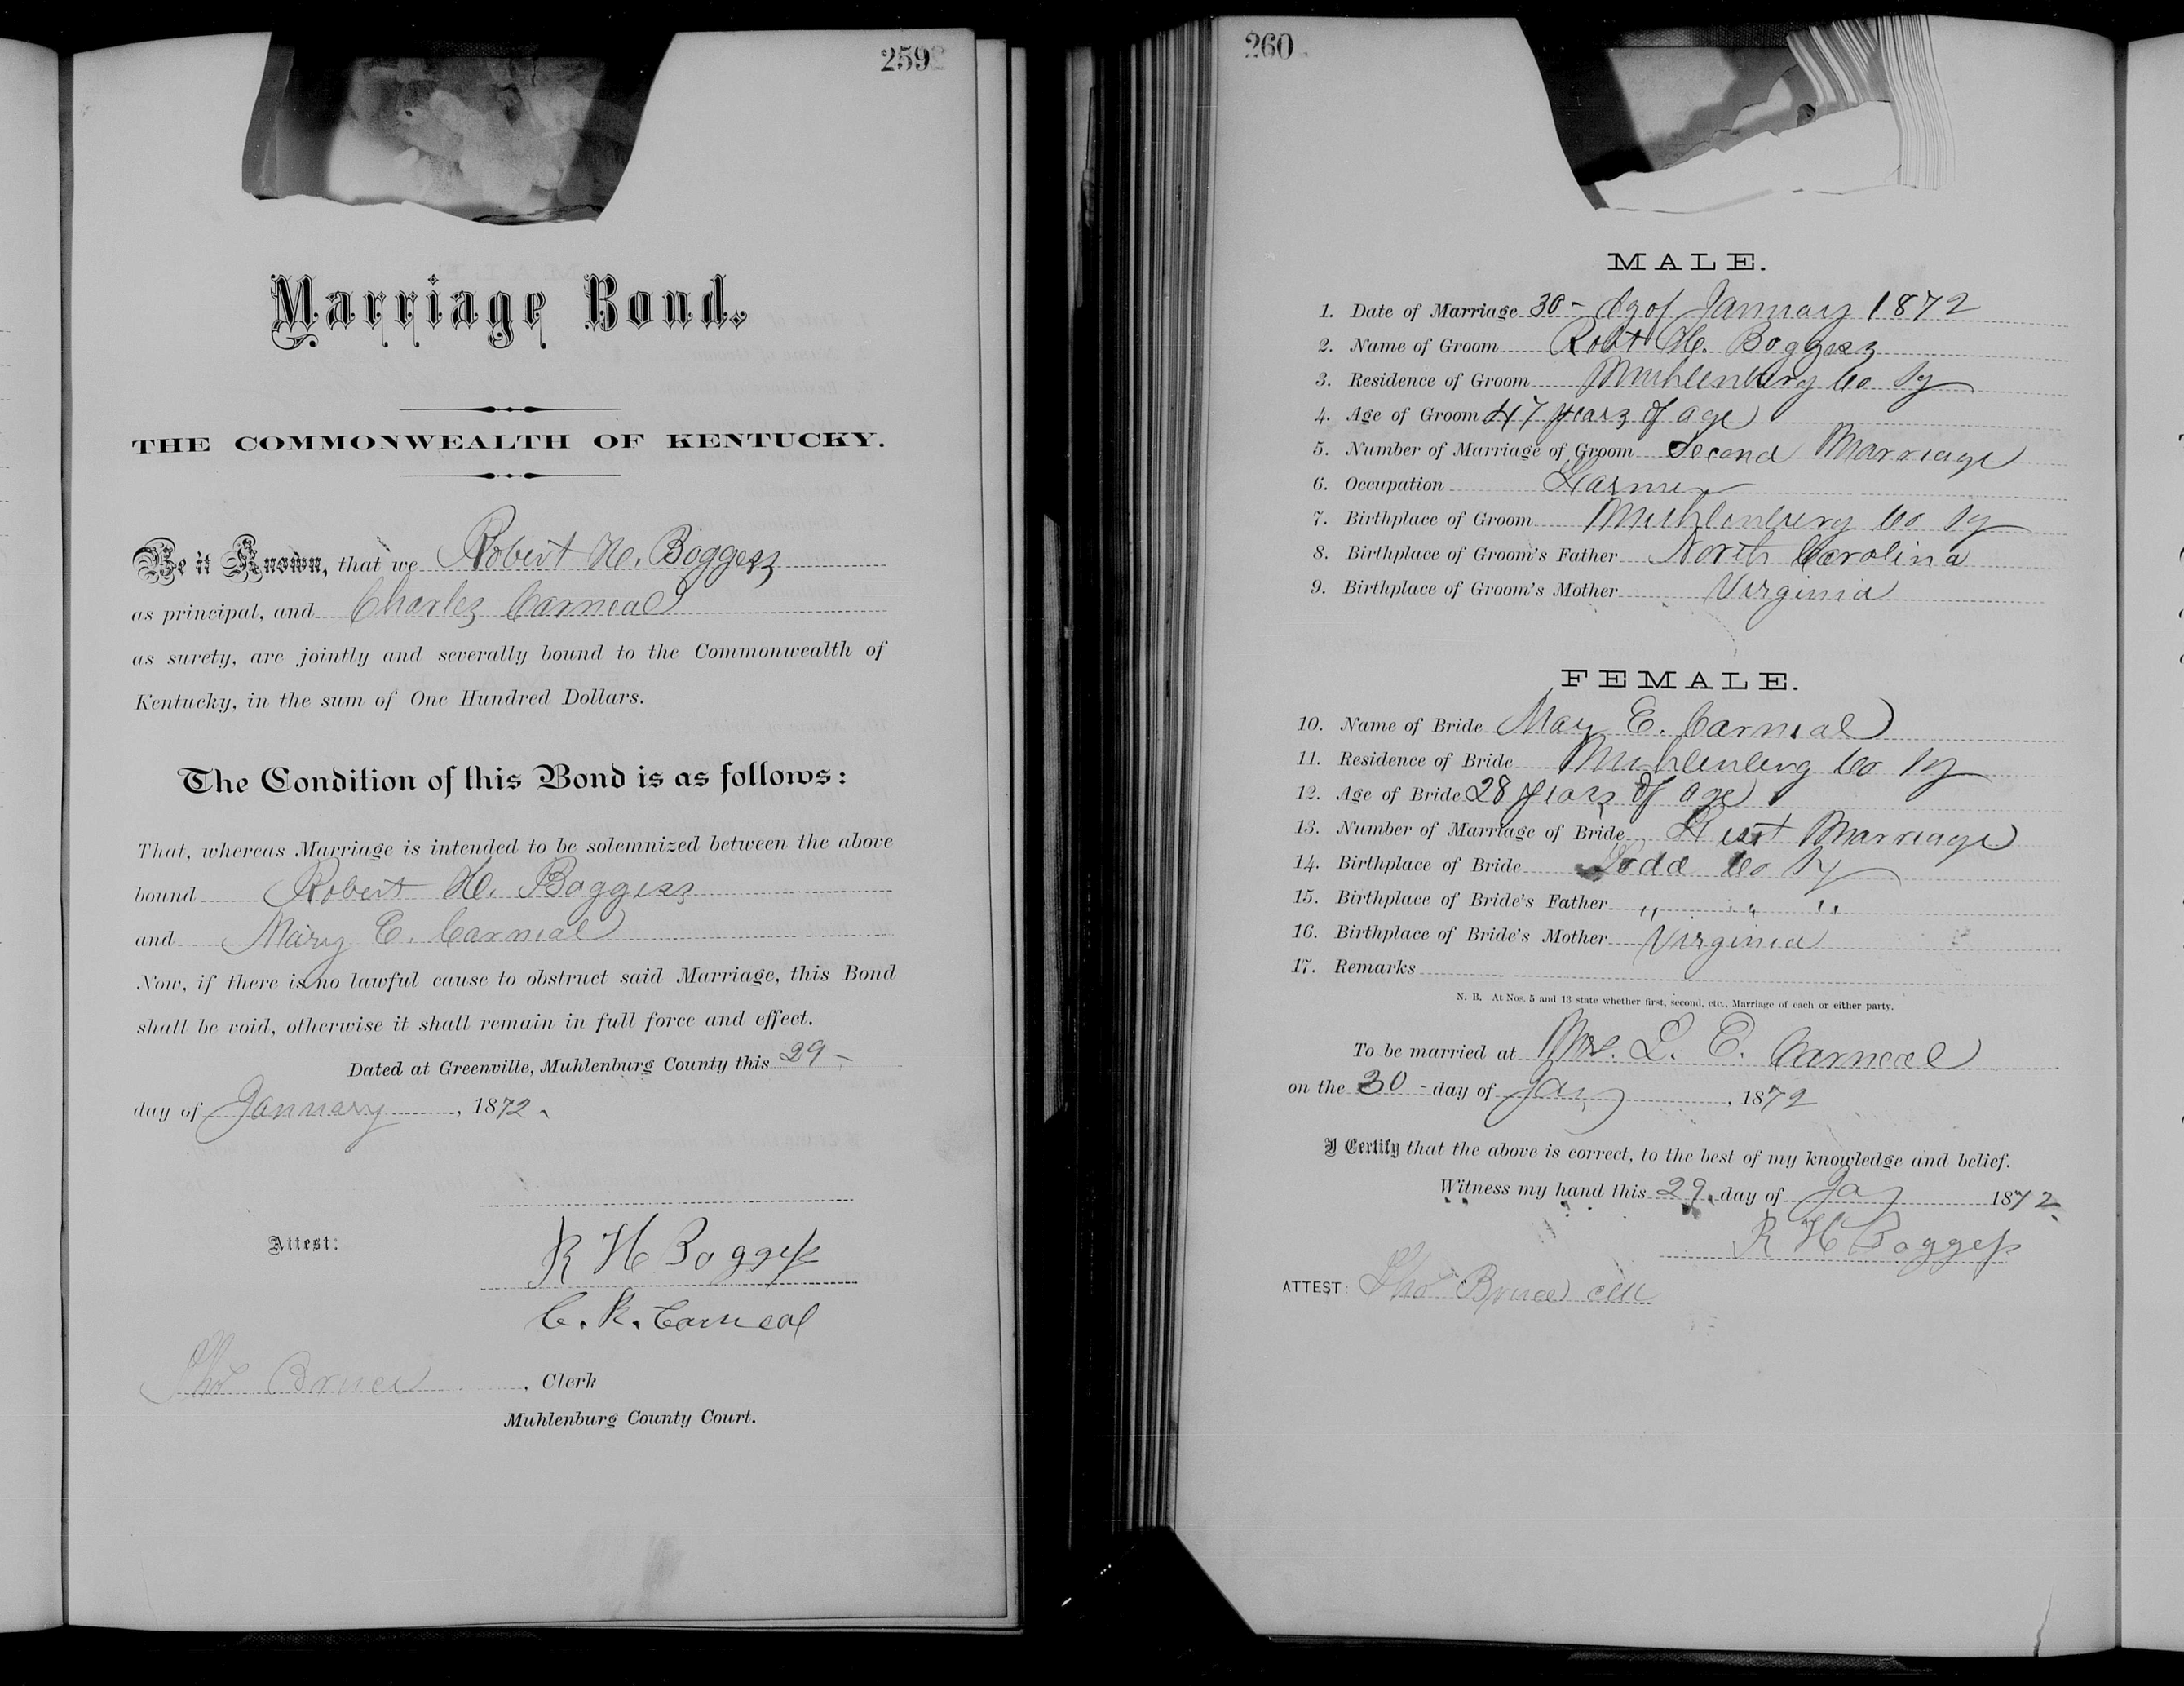 259
Marriage Bond.
THE COMMONWEALTH OF KENTUCKY.
Be it Known, that we Robert H. Boggess
as principal, and Charles Carneal
as surety, are jointly and severally bound to the Commonwealth of
Kentucky, in the sum of One Hundred Dollars.
The Condition of this Bond is as follows:
That, whereas Marriage is intended to be solemnized between the above
bound Robert H. Boggess
and Mary E. Carneal
Now, if there is no lawful cause to obstruct said Marriage, this Bond
shall be void, otherwise it shall remain in full force and effect.
Dated at Greenville, Muhlenburg County this 29-
day of January, 1872.
Attest:
R H Boggess
C. R. Carneal
Thos Bruce, Clerk
Muhlenburg County Court.
260
MALE.
1. Date of Marriage 30- dy of January 1872
2. Name of Groom Robt H. Boggess
3. Residence of Groom Muhlenburg Co Ky
4. Age of Groom 47 years of age
5. Number of Marriage of Groom Second Marriage
6. Occupation Farmer
7. Birthplace of Groom Muhlenburg Co Ky
8. Birthplace of Groom's Father North Carolina
9. Birthplace of Groom's Mother Virginia
FEMALE.
10. Name of Bride May E. Carneal
11. Residence of Bride Muhlenburg Co Ky
12. Age of Bride 28 years of age
13. Number of Marriage of Bride First Marriage
14. Birthplace of Bride Todd Co Ky
15. Birthplace of Bride's Father " " "
16. Birthplace of Bride's Mother Virginia
17. Remarks
N. B. At Nos. 5 and 13 state whether first, second, etc., Marriage of each or either party.
To be married at Mrs. L. E. Carneal
on the 30 - day of Jany, 1872
I Certify that the above is correct, to the best of my knowledge and belief.
Witness my hand this 29. day of Jay 1872
R H Boggess
ATTEST: Thos Bruce clk